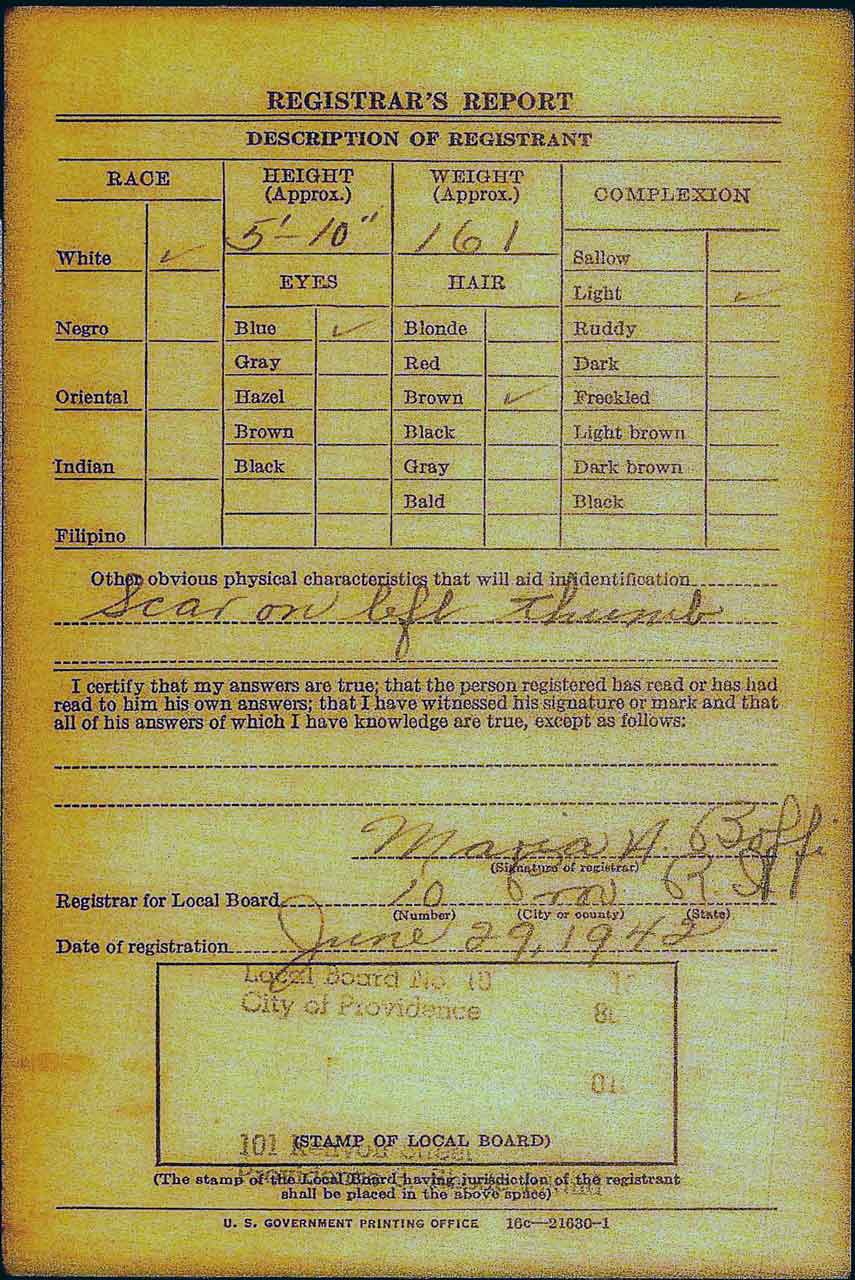 REGISTRAR'S REPORT
DESCRIPTION OF REGISTRANT
RACE
HEIGHT
(Approx.)
WEIGHT
(Approx.)
COMPLEXION
5'-10"
161
White ✓
Sallow
EYES
HAIR
Light ✓
Negro
Blue ✓
Blonde
Ruddy
Gray
Red
Dark
Oriental
Hazel
Brown ✓
Freckled
Brown
Black
Light brown
Indian
Black
Gray
Dark brown
Bald
Black
Filipino
Other obvious physical characteristics that will aid in identification
Scar on left thumb
I certify that my answers are true; that the person registered has read or has had
read to him his own answers; that I have witnessed his signature or mark and that
all of his answers of which I have knowledge are true, except as follows:
Maria A. Boffi
(Signature of registrar)
Registrar for Local Board 10 Prov R.I.
(Number) (City or county) (State)
Date of registration June 29, 1942
Local Board No. 10
City of Providence
101
Street
(STAMP OF LOCAL BOARD)
(The stamp of the Local Board having jurisdiction of the registrant
shall be placed in the above space)
U. S. GOVERNMENT PRINTING OFFICE 16c—21630-1